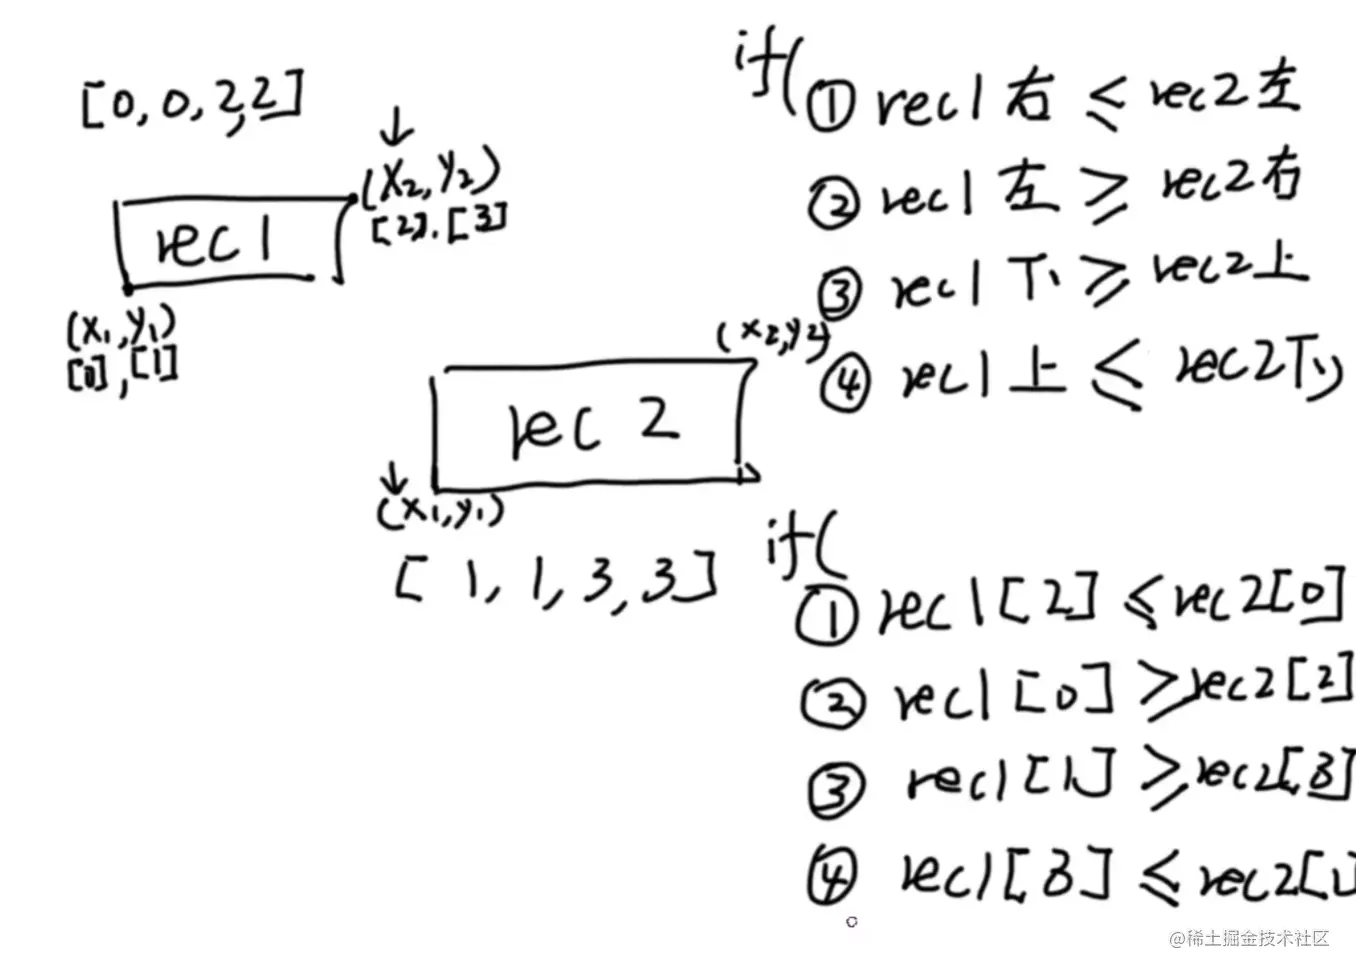 [0, 0, 2, 2]
↓
(x₂, y₂)
[2], [3]
rec1
(x₁, y₁)
[0], [1]
(x₂, y₂)
rec2
↓
(x₁, y₁)
[1, 1, 3, 3]
if(
① rec1右 ≤ rec2左
② rec1左 ≥ rec2右
③ rec1下 ≥ rec2上
④ rec1上 ≤ rec2下)
if(
① rec1[2] ≤ rec2[0]
② rec1[0] ≥ rec2[2]
③ rec1[1] ≥ rec2[3]
④ rec1[3] ≤ rec2[1]
@稀土掘金技术社区